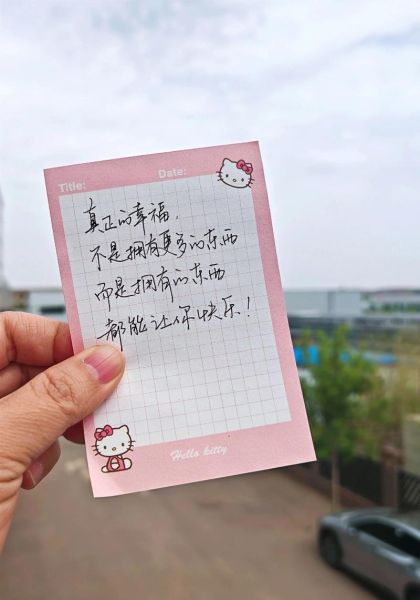 Title:
Date:
真正的幸福，
不是拥有更多的东西
而是拥有的东西
都能让你快乐！
Hello kitty